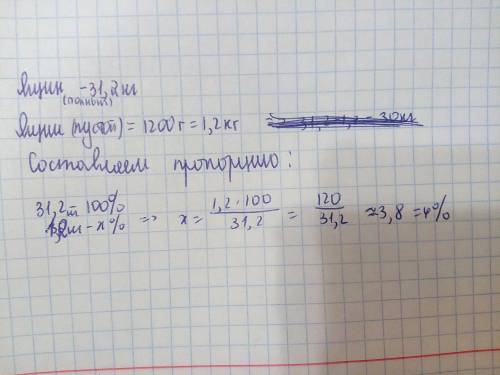 Ящик - 31,2 кг
(полный)
Ящик (пустой) = 1200 г = 1,2 кг
Составляем пропорцию:
31,2 - 100%
1,2 - x% => x = 1,2 · 100 / 31,2 = 120 / 31,2 ≈ 3,8 = 4%